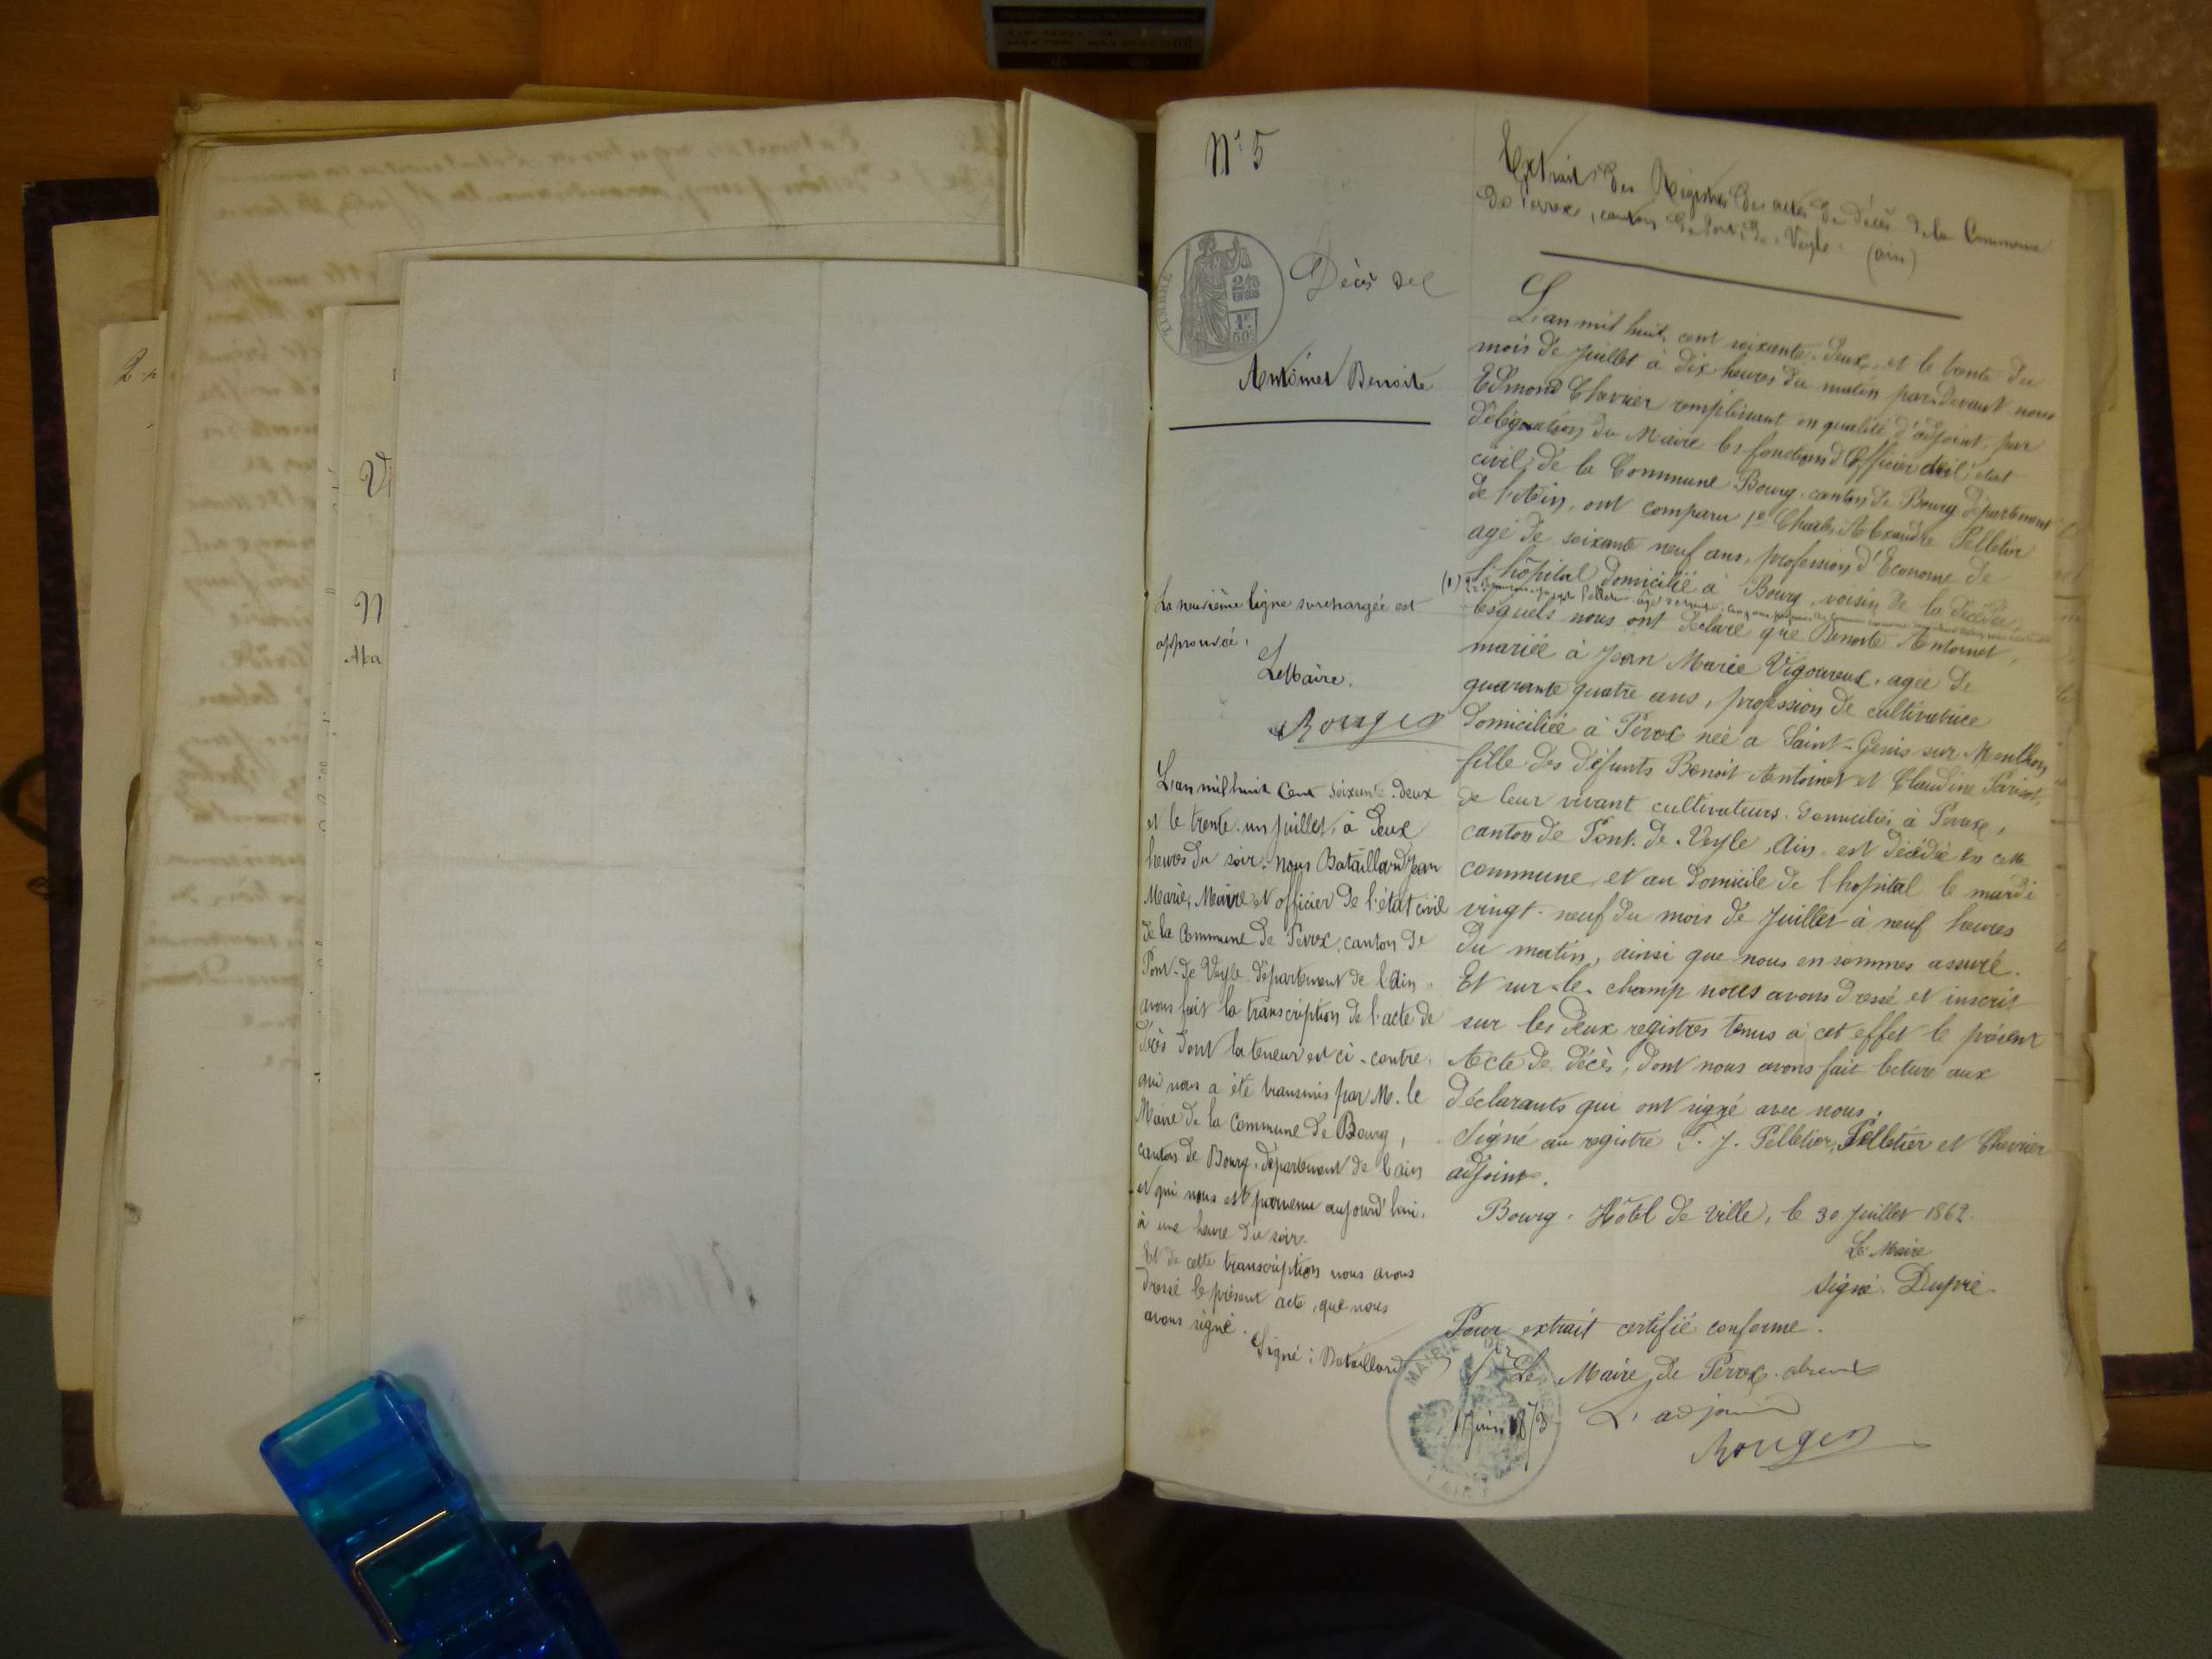 N° 5
TIMBRE
2/10
EN SUS
1F
50c
Décès de
Antoinet Benoite
La neuvième ligne surchargée est
approuvée.
Le Maire.
Rouger
L'an mil huit cent soixante-deux
et le trente-un juillet, à deux
heures du soir, nous Bataillard Jean
Marie, Maire et officier de l'état civil
de la commune de Perrex, canton de
Pont-de-Veyle, département de l'Ain,
avons fait la transcription de l'acte de
décès dont la teneur est ci-contre,
qui nous a été transmis par M. le
Maire de la commune de Bourg,
canton de Bourg, département de l'ain
et qui nous est parvenu aujourd'hui,
à une heure du soir.
Et de cette transcription nous avons
dressé le présent acte, que nous
avons signé.
Signé : Bataillard
Extrait des Régistres des actes de décès de la Commune
de Perrex, canton de Pont-de-Veyle (ain)
L'an mil huit cent soixante-deux, et le trente du
mois de juillet à dix heures du matin par-devant nous
Edmond Chevrier remplissant en qualité d'adjoint, par
délégation du Maire les fonctions d'Officier de l'état
civil, de la Commune Bourg, canton de Bourg département
de l'Ain, ont comparu 1° Charles Alexandre Pelletier
agé de soixante neuf ans, profession d'Econome de
l'hôpital domicilié à Bourg, voisin de la décédée,
(1) 2°
lesquels nous ont déclaré que Benoite Antoinet,
mariée à Jean Marie Vigoureux, agée de
quarante quatre ans, profession de cultivatrice
domiciliée à Perrex née a Saint-Genis sur Menthon
fille des défunts Benoit Antoinet et Claudine Parisot,
de leur vivant cultivateurs, domiciliés à Perrex,
canton de Pont-de-Veyle, Ain, est décédée en cette
commune, et au domicile de l'hopital le mardi
vingt-neuf du mois de Juillet à neuf heures
du matin, ainsi que nous en sommes assuré.
Et sur-le-champ nous avons dressé et inscrit
sur les deux registres tenus à cet effet le présent
Acte de décès, dont nous avons fait lecture aux
déclarants qui ont signé avec nous.
Signé au registre J. Pelletier, Pelletier et Chevrier
adjoint.
Bourg, Hôtel de Ville, le 30 Juillet 1862.
Le Maire
Signé. Dupré.
Pour extrait certifié conforme.
Pr Le Maire de Perrex absent
L'adjoint
Rouger
MAIRIE DE PERREX
(AIN)
Juin 1873
2
V
N
Ma